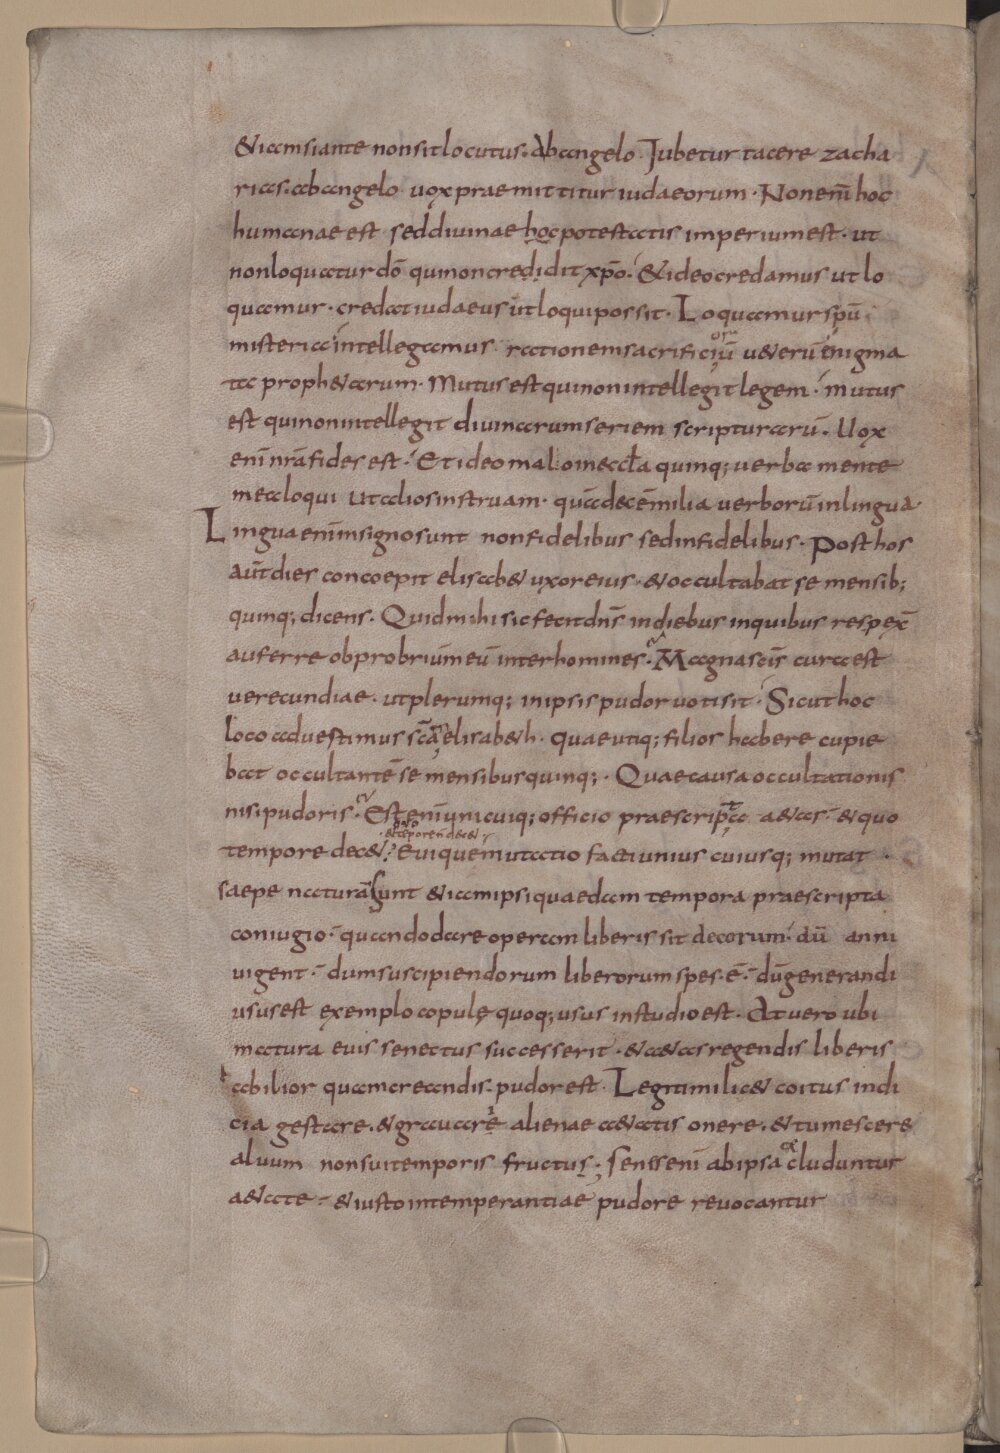 &iamsiante nonsit locutus. Abangelo Jubetur tacere zacha
rias. abangelo uox praemittitur iudaeorum. Non enī hoc
humanae est sed diuinae hoc potestatis imperium est. ut
non loquatur dō qui non credidit xp̄o. & ideo credamus ut lo
quamur. credat iudaeus ut loqui possit. Loquamur sp̄u
misteria intellegamus rationem sacrificiū u&erū enigma
ta proph&arum. Mutus est qui non intellegit legem. mutus
est qui non intellegit diuinarum seriem scripturarū. Uox
enī nr̄a fides est. Et ideo malo in eccl̄a quinq; uerba mente
mea loqui ut alios instruam. quā decē milia uerborū in lingua
Lingua enī in signo sunt non fidelibus sed infidelibus. Post hos
aūt dies concoepit elisab& uxor eius. & occultabat se mensib;
quinq; dicens. Quid mihi sic fecit dn̄s in diebus in quibus respex̄
auferre obprobrium eū inter homines. Magna sc̄is cura est
uerecundiae. ut plerumq; in ipsis pudor uoti sit. Sicut hoc
loco aduestimus sc̄a elisab&h. quae utiq; filios habere cupie
bat occultantē se mensibus quinq;. Quae causa occultationis
nisi pudoris. Est enī unicuiq; officio praescripta a&as. & quo
& tēpore ñ dec&
tempore dec&. Eui quem mutatio facti unius cuiusq; mutat
saepe naturā sunt &iam ipsi quaedam tempora praescripta
coniugio. quando dare operam liberis sit decorum. dū anni
uigent. dum suscipiendorum liberorum spes ē. dū generandi
usus est exemplo copulę quoq; usus in studio est. At uero ubi
matura euis senectus successerit. & a&as regendis liberis
abilior quam creandis. pudor est. Legitimi lic& coitus indi
cia gestare. & grauare alienae a&atis onere. & tumescere
aluum non sui temporis fructus; senes senī ab ipsa cluduntur
a&ate. & iusto intemperantiae pudore reuocantur